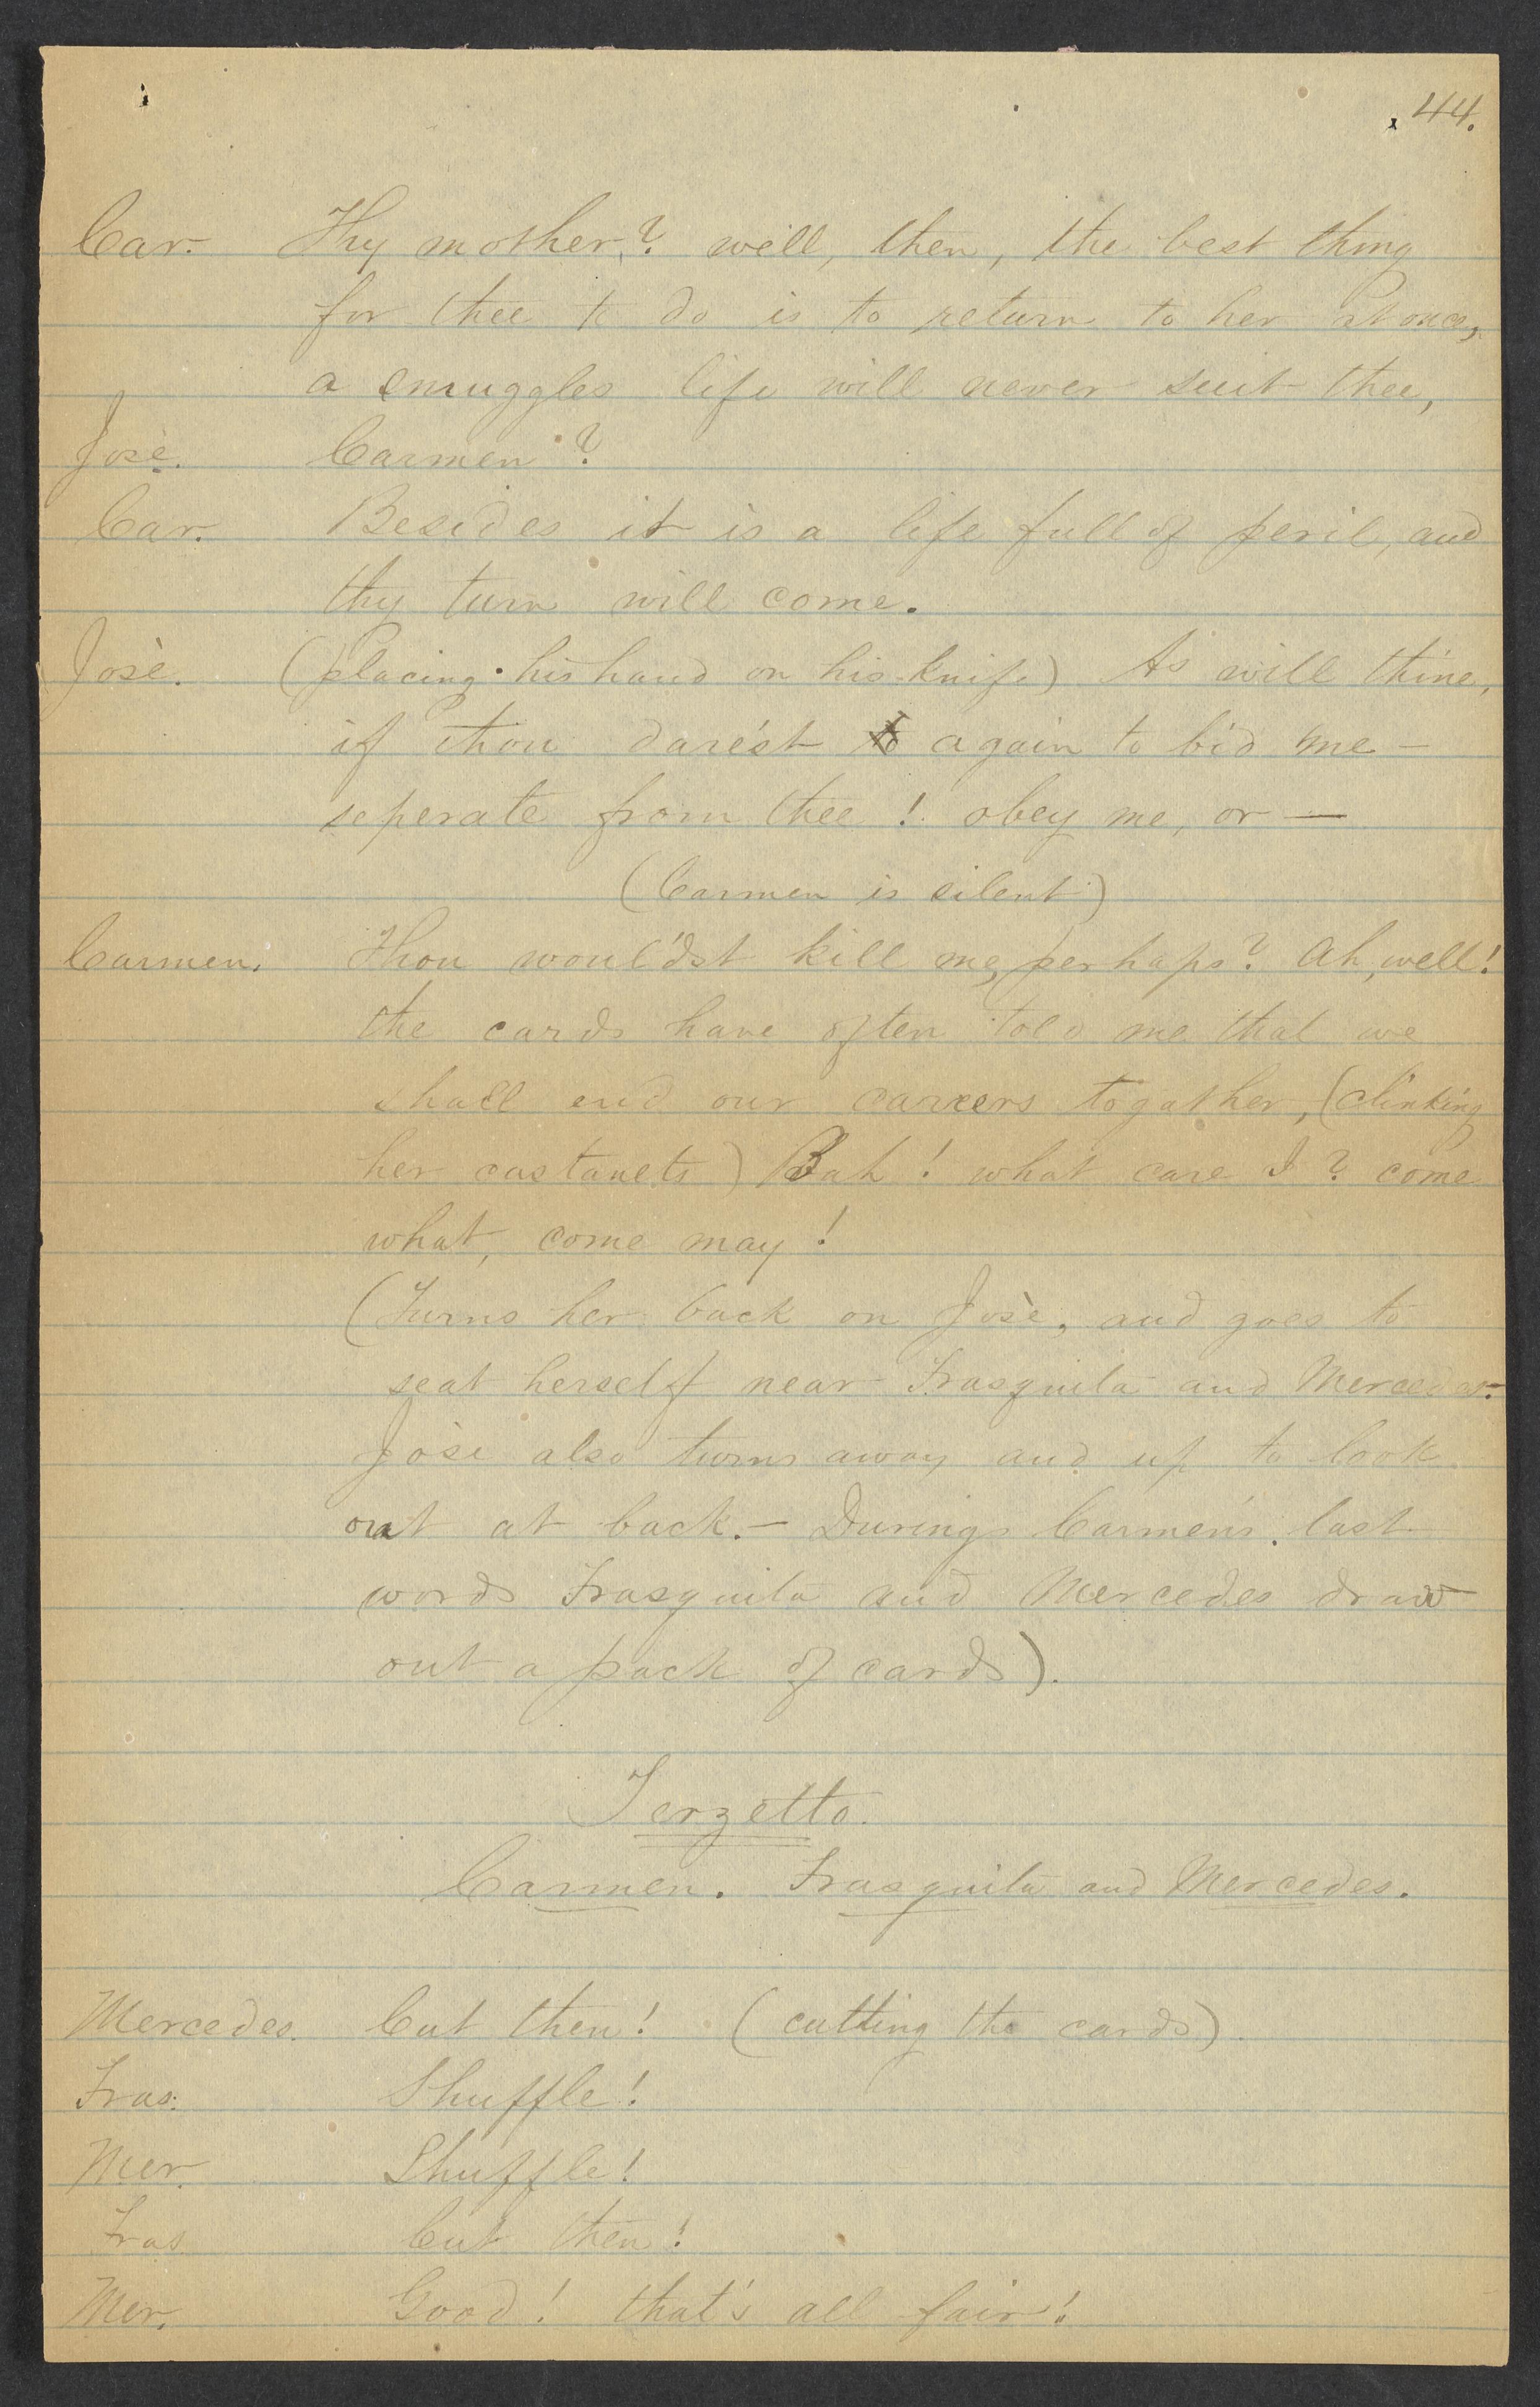 44.
Car. Thy mother? well, then, the best thing
for thee to do is to return to her at once,
a smuggles life will never suit thee,
José. Carmen?
Car. Besides it is a life full of peril, and
thy turn will come.
Josè. (placing his hand on his knife) As will thine,
if thou dare'st to again to bid me -
seperate from thee! obey me, or —
(Carmen is silent)
Carmen. Thou woul'dst kill me, perhaps? Ah, well!
the cards have often told me that we
shall end our careers togather, (clinking
her castanets) Bah! what care I? come
what, come may!
(Turns her back on Josè, and goes to
seat herself near Frasquita and Mercedes.
Jòse also turns away and up to look
out at back. - During Carmen's last
words Frasquita and Mercedes draw
out a pack of cards).
Terzetto.
Carmen. Frasquita and Mercedes.
Mercedes. Cut then! (cutting the cards).
Fras. Shuffle!
Mer. Shuffle!
Fras Cut then!
Mer. Good! that's all fair!